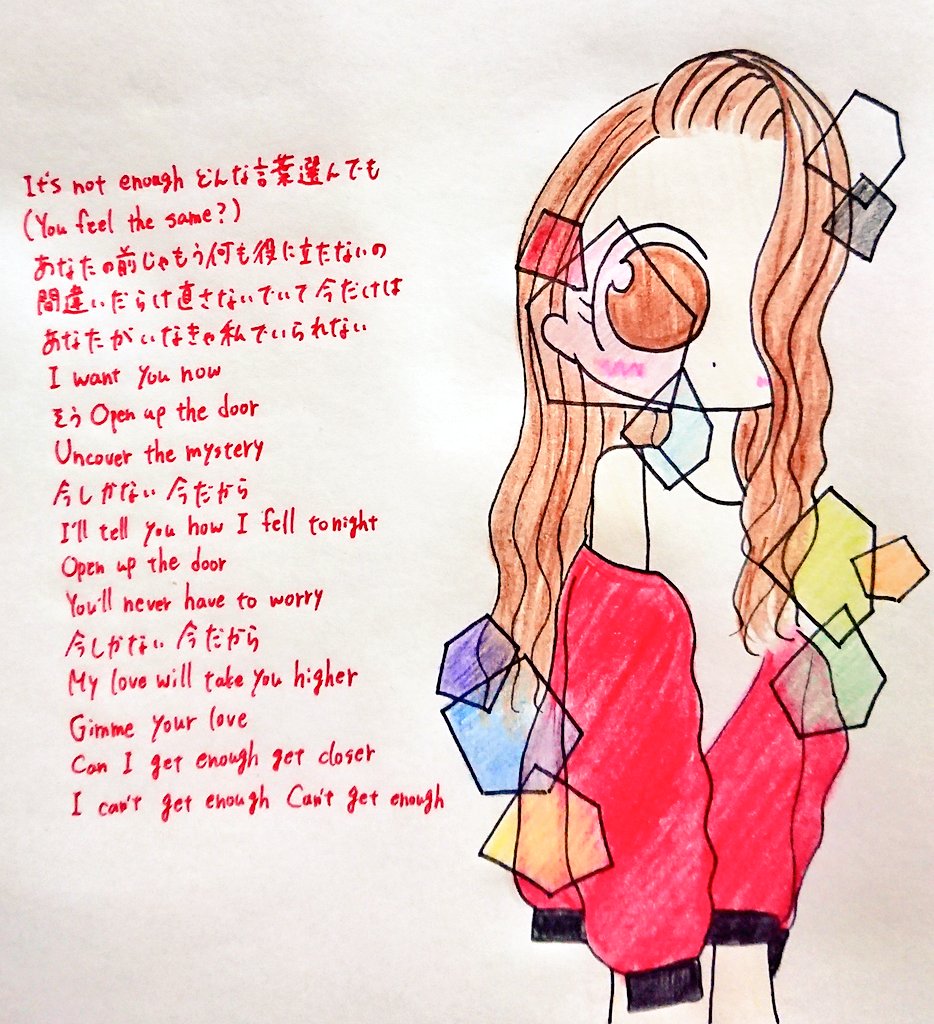 It's not enough どんな言葉選んでも
(You feel the same?)
あなたの前じゃもう何も役に立たないの
間違いだらけ直さないでいて今だけは
あなたがいなきゃ私でいられない
I want you now
そう Open up the door
Uncover the mystery
今しかない 今だから
I'll tell you how I fell tonight
Open up the door
You'll never have to worry
今しかない 今だから
My love will take you higher
Gimme your love
Can I get enough get closer
I can't get enough Can't get enough